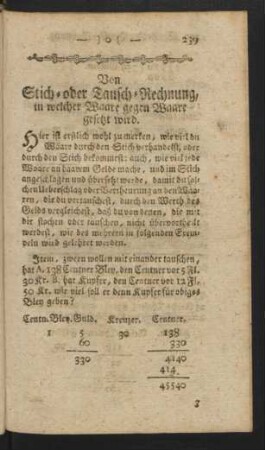 — ) o ( — 239
Von
Stich- oder Tausch-Rechnung,
in welcher Waare gegen Waare
gesetzt wird.
Hier ist erstlich wohl zu merken, wie viel du
Waare durch den Stich verhandelst, oder
durch den Stich bekommest: auch, wie viel jede
Waare an baarem Gelde mache, und im Stich
angeschlagen und übersetzt werde, damit du solchen
Ueberschlag oder Vertheurung an den Waaren,
die du vertauschest, durch den Werth des
Gelds vergleichest, daß du von denen, die mit
dir stechen oder tauschen, nicht übervortheilt
werdest, wie des mehrern in folgenden Exempeln
wird gelehret werden.
Item, zween wollen mit einander tauschen,
hat A. 138 Centner Bley, den Centner vor 5 Fl.
30 Kr. B. hat Kupfer, den Centner vor 12 Fl.
50 Kr. wie viel soll er denn Kupfer für obiges
Bley geben?
Centn. Bley. Guld. Kreuzer. Centner.
1 5 30 138
60 330
330 4140
414
45540